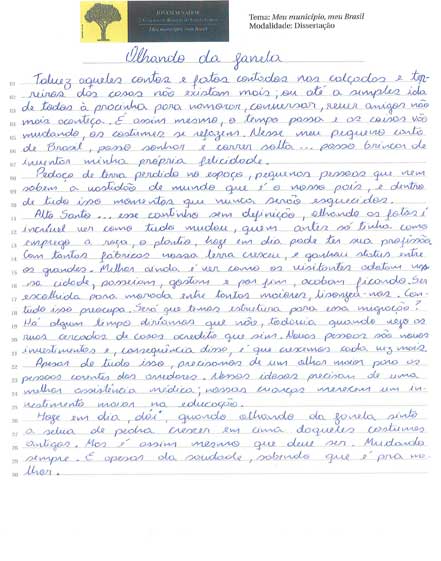 JOVEM SENADOR
Meu município, meu Brasil
Tema: Meu município, meu Brasil
Modalidade: Dissertação
Olhando da janela
01 Talvez aqueles contos e fatos contados nas calçadas e ter-
02 reiros das casas não existam mais; ou até a simples ida
03 de todos à pracinha para namorar, conversar, rever amigos não
04 mais aconteça. É assim mesmo, o tempo passa e as coisas vão
05 mudando, os costumes se refazem. Nesse meu pequeno canto
06 de Brasil, posso sonhar e correr solta... posso brincar de
07 inventar minha própria felicidade.
08 Pedaço de terra perdido no espaço, pequenas pessoas que nem
09 sabem a vastidão de mundo que é o nosso país, e dentro
10 de tudo isso momentos que nunca serão esquecidos.
11 Alto Santo... esse cantinho sem definição, olhando as fotos é
12 incrível ver como tudo mudou, quem antes só tinha como
13 emprego a roça, o plantio, hoje em dia pode ter sua profissão.
14 Com tantas fábricas nossa terra cresceu, e ganhou status entre
15 as grandes. Melhor ainda é ver como os visitantes adotam nos-
16 sa cidade, passeiam, gostam e por fim, acabam ficando. Ser
17 escolhida para morada entre tantas maiores, lisonjeia-nos. Con-
18 tudo isso preocupa. Será que temos estrutura para essa migração?
19 Há algum tempo diríamos que não, todavia quando vejo as
20 ruas cercadas de casas acredito que sim. Novas pessoas são novos
21 investimentos e, consequência disso, é que crescemos cada vez mais.
22 Apesar de tudo isso, precisamos de um olhar maior para as
23 pessoas carentes dos arredores. Nossos idosos precisam de uma
24 melhor assistência médica; nossas crianças merecem um in-
25 vestimento maior na educação.
26 Hoje em dia, dói, quando olhando da janela sinto
27 a selva de pedra crescer em cima daqueles costumes
28 antigos. Mas é assim mesmo que deve ser. Mudando
29 sempre. E apesar da saudade, sabendo que é pra me-
30 lhor.